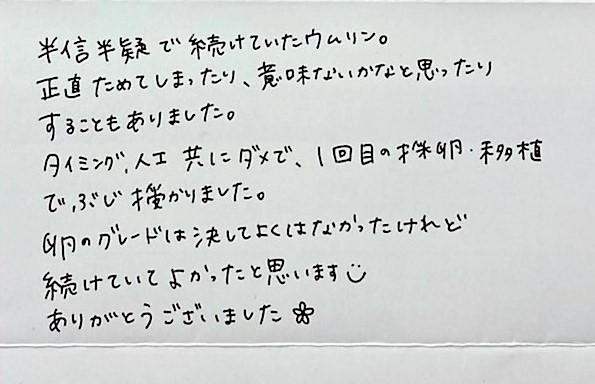 半信半疑で続けていたウムリン。
正直ためてしまったり、意味ないかなと思ったり
することもありました。
タイミング、人工 共にダメで、1回目の採卵・移植
で、ぶじ授かりました。
卵のグレードは決してよくはなかったけれど
続けていてよかったと思います
ありがとうございました